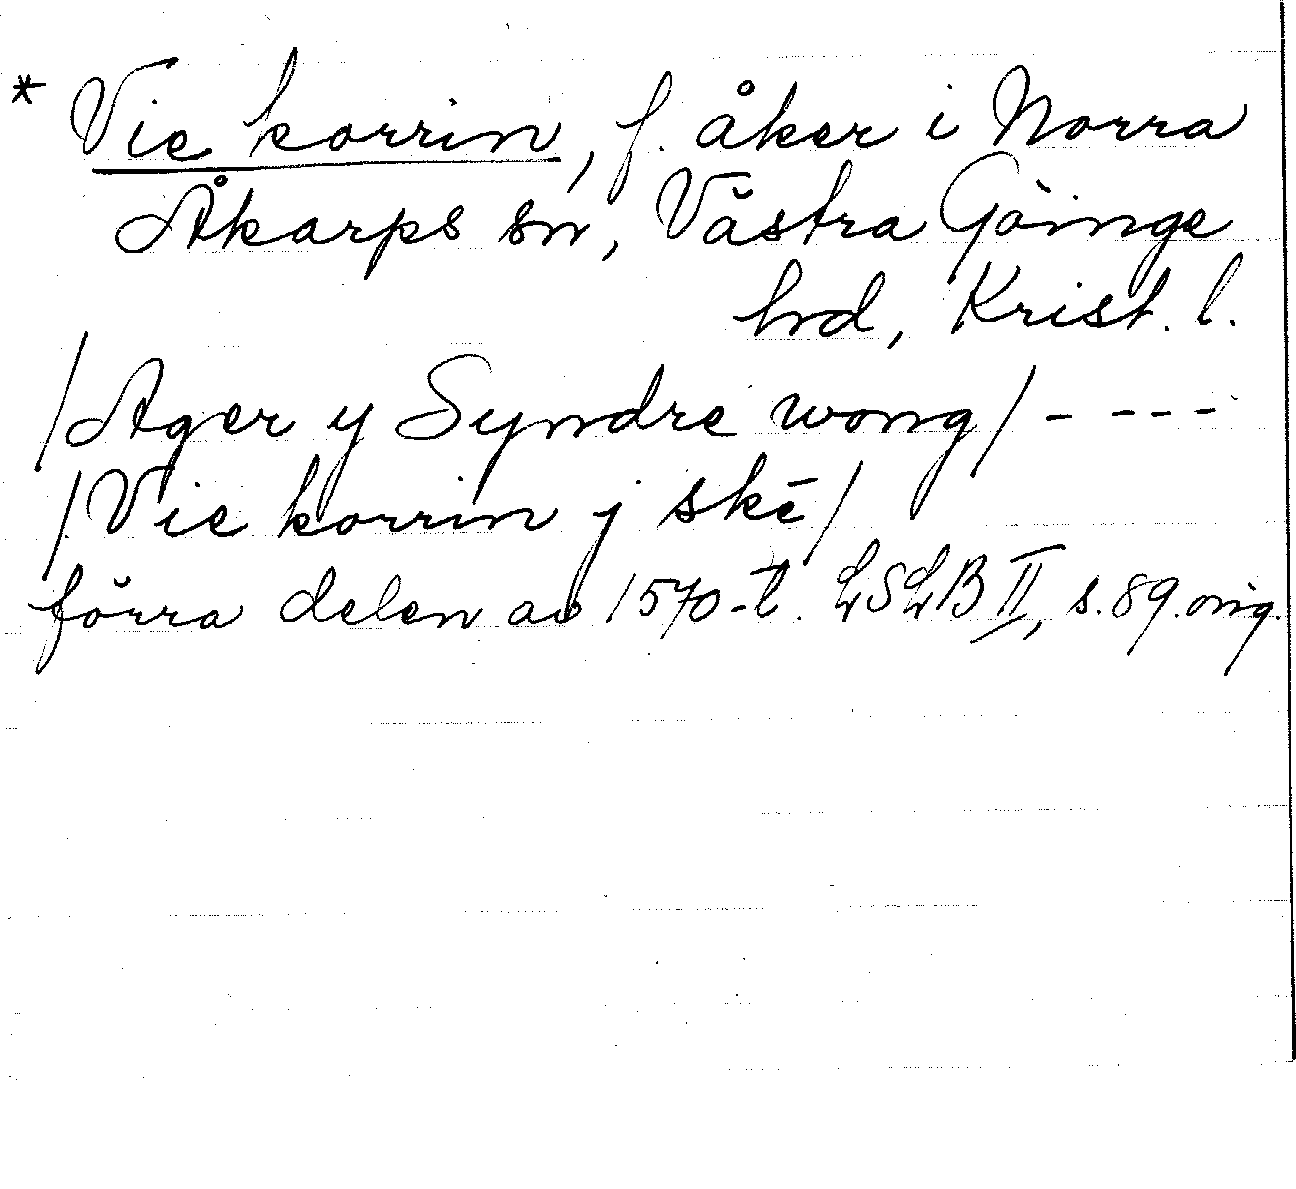 * Vie korrin, f. åker i Norra
Åkarps sn, Västra Göinge
hrd, Krist. l.
/Ager y Syndre wong/ - - - -
/Vie korrin j skē/
förra delen av 1570-t. LSLB II, s. 89. orig.